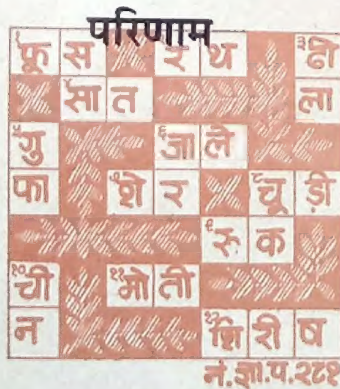 परिणाम
१फू स र थ ३ढी
४सा त ला
५गु ६जा ले
फा ७शे र ८चू ड़ी
९रू क
१०ची ११मो ती
न १२शि री ष
नं.ज्ञा.प.२८१